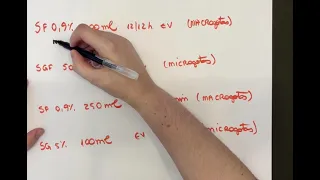 SF 0,9% 12/12h EV (MACROgotas)
SGF (MICROgotas)
SF 0,9% 250 ml (MACROgotas)
SG 5% 100ml EV microgotas)